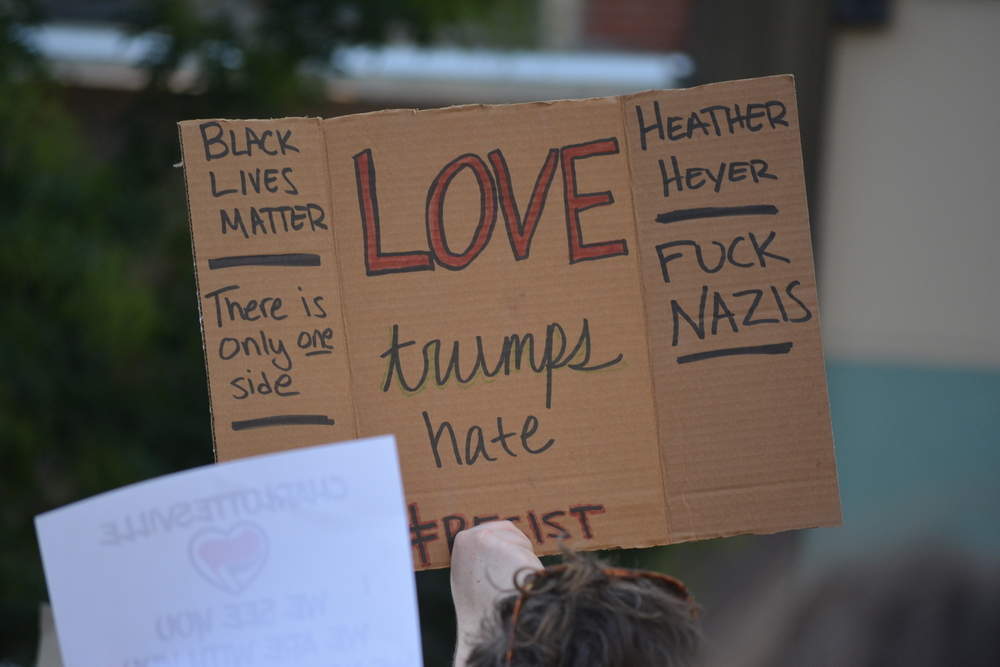 BLACK
LIVES
MATTER
There is
only one
side
LOVE
trumps
hate
#RESIST
HEATHER
HEYER
FUCK
NAZIS
CHARLOTTESVILLE
I
WE SEE YOU
WE ARE WITH YOU